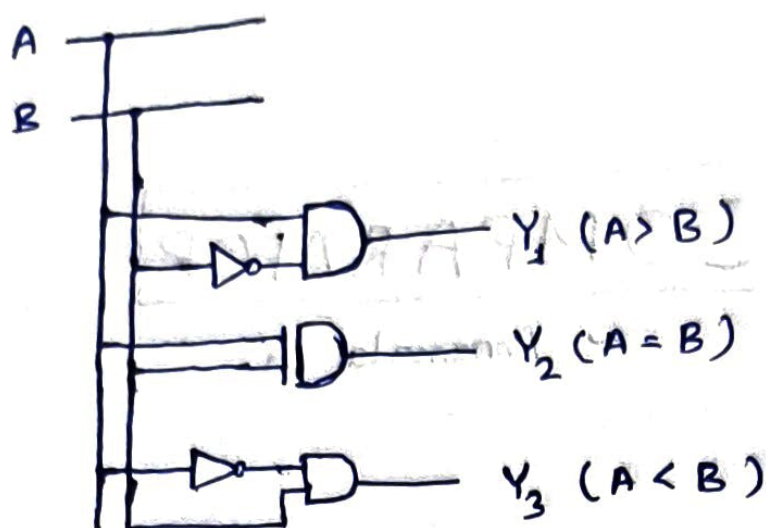 A
B
Y₁ (A > B)
Y₂ (A = B)
Y₃ (A < B)